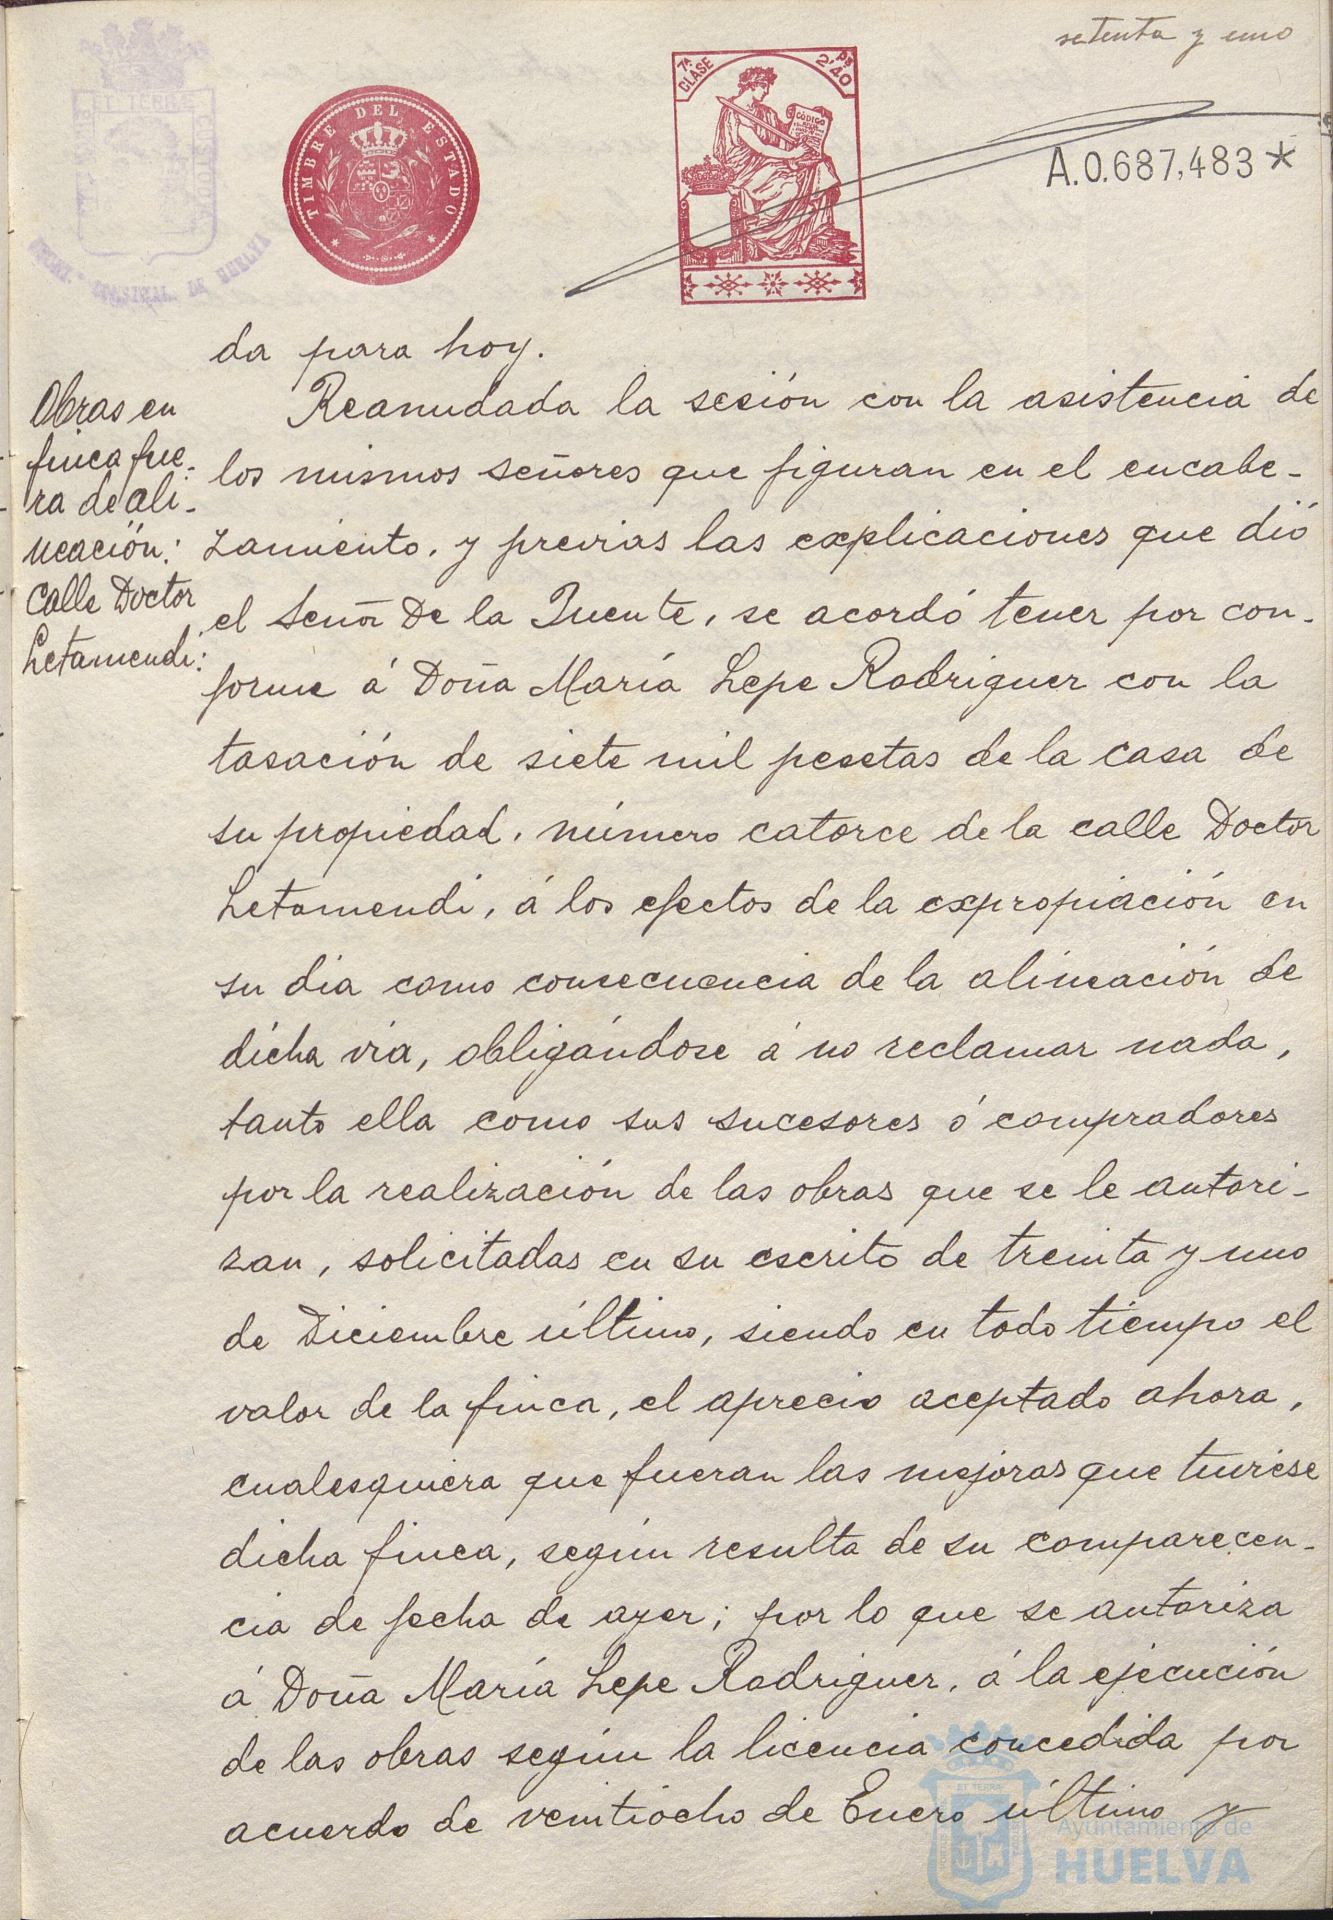 setenta y uno
TIMBRE DEL ESTADO
7ª CLASE
Ps 2'40
CÓDIGO
A.0.687,483*
ET TERRÆ CUSTODIA
DE HUELVA
da para hoy.
Obras en
finca fue-
ra de ali-
neación:
Calle Doctor
Letamendi:
Reanudada la sesión con la asistencia de
los mismos señores que figuran en el encabe-
zamiento, y previas las explicaciones que dió
el Señor De la Fuente, se acordó tener por con-
forme á Doña María Lepe Rodriguez con la
tasación de siete mil pesetas de la casa de
su propiedad, número catorce de la calle Doctor
Letamendi, á los efectos de la expropiación en
su dia como consecuencia de la alineación de
dicha vía, obligándose á no reclamar nada,
tanto ella como sus sucesores ó compradores
por la realización de las obras que se le autori-
zan, solicitadas en su escrito de treinta y uno
de Diciembre último, siendo en todo tiempo el
valor de la finca, el aprecio aceptado ahora,
cualesquiera que fueran las mejoras que tuviese
dicha finca, según resulta de su comparecen-
cia de fecha de ayer; por lo que se autoriza
á Doña María Lepe Rodriguez, á la ejecución
de las obras según la licencia concedida por
acuerdo de veintiocho de Enero último y
Ayuntamiento de
HUELVA